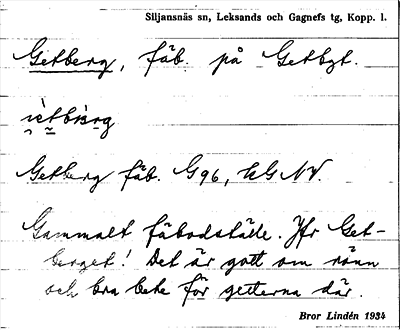 Siljansnäs sn, Leksands och Gagnefs tg, Kopp. l.
Getberg, fäb. på Getbgt.
Getberg fäb. G96, UGNV.
Gammalt fäbodställe. Jfr Get-
berget! Det är gott om rönn
och bra bete för getterna där.
Bror Lindén 1934